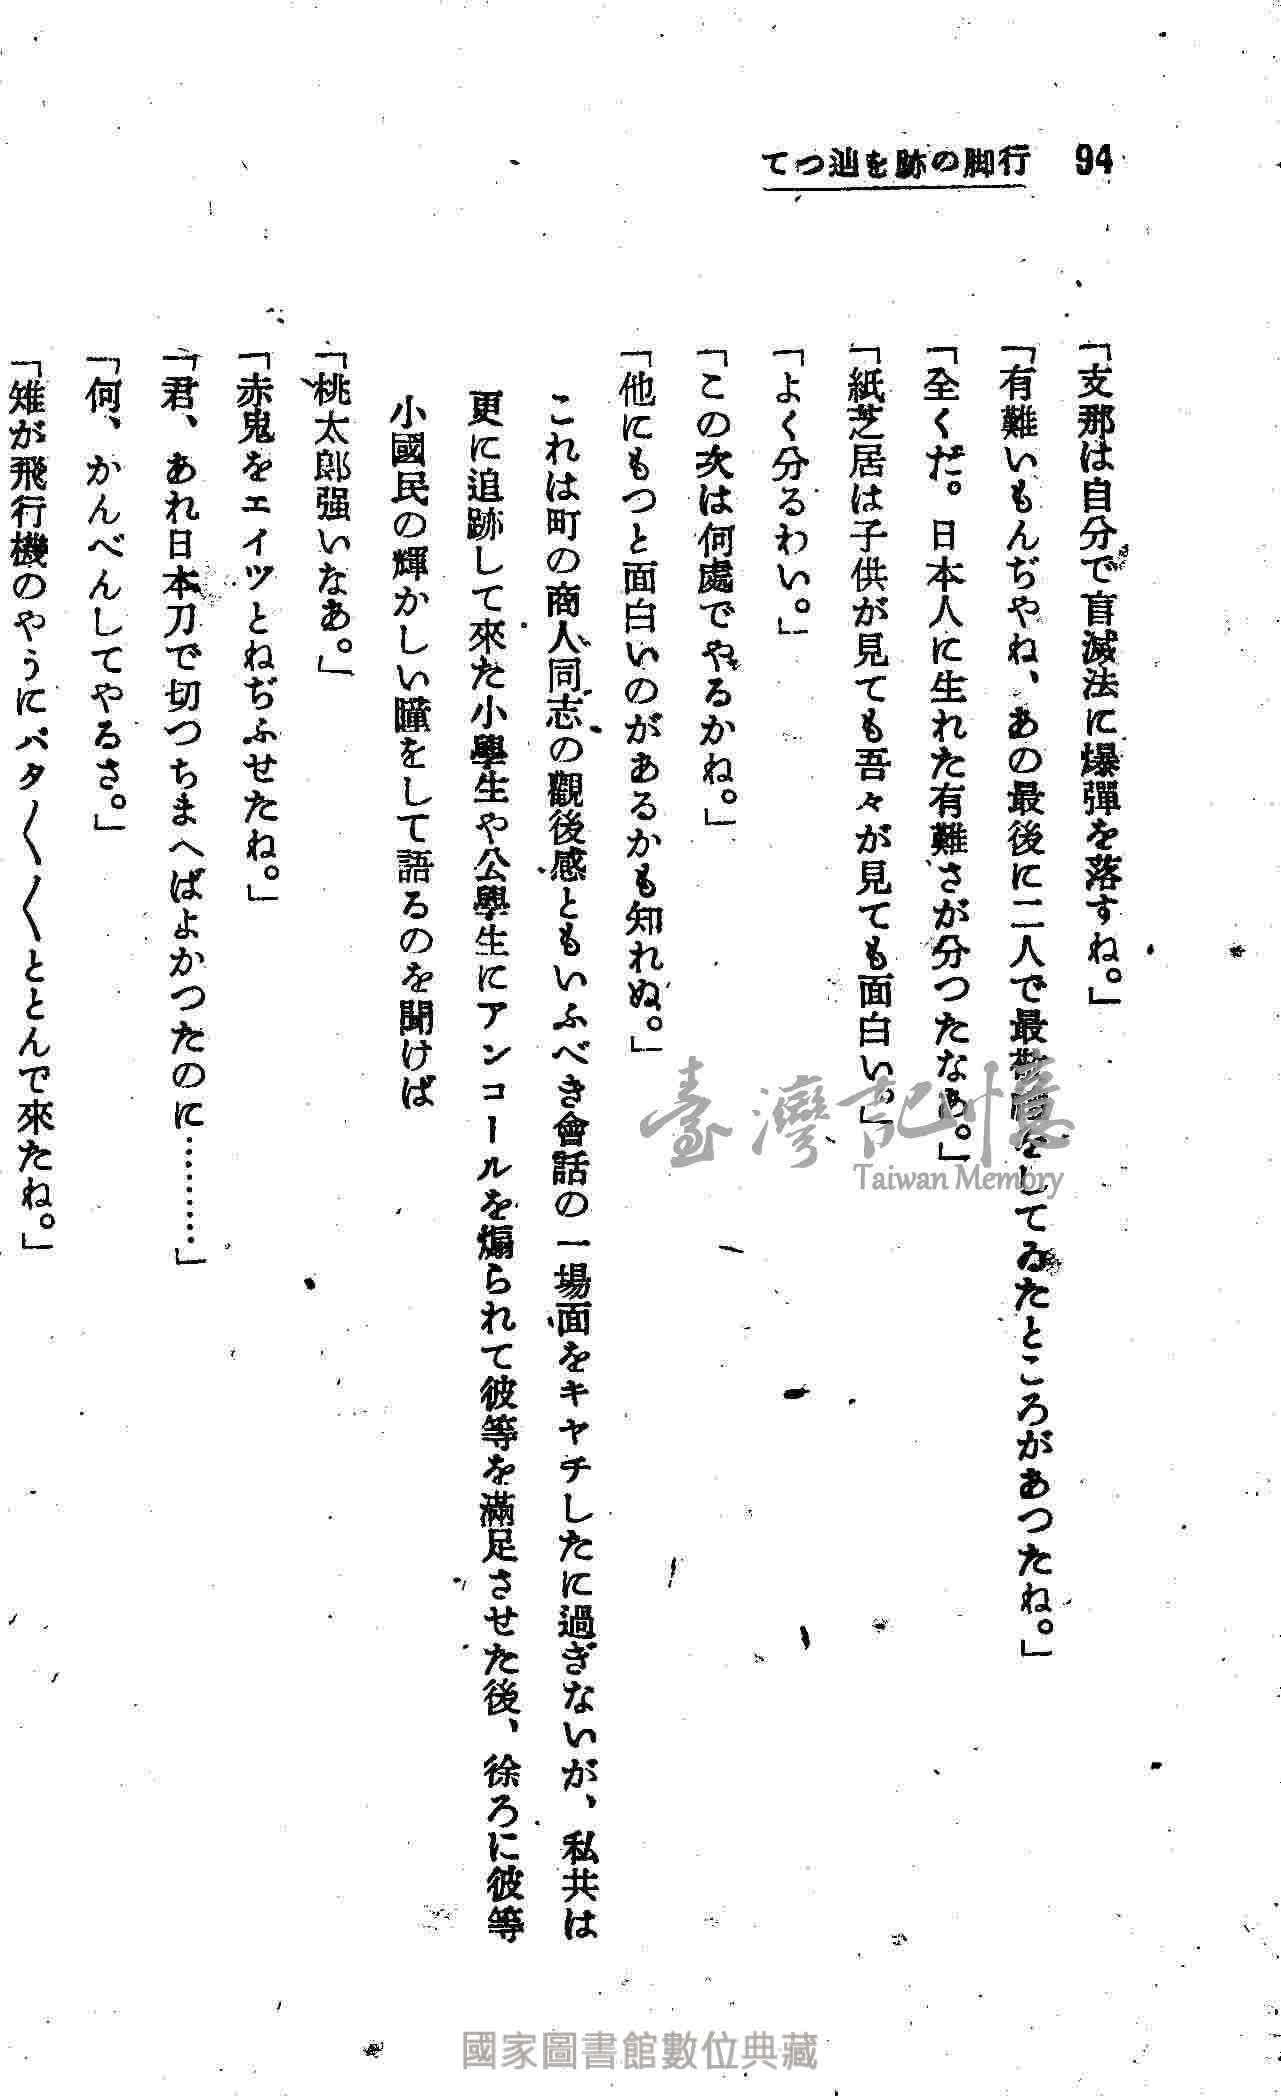 94
行脚の跡を辿つて
「支那は自分で盲滅法に爆彈を落すね。」
「有難いもんぢやね、あの最後に二人で最敬禮をしてゐたところがあつたね。」
「全くだ。日本人に生れた有難さが分つたなあ。」
「紙芝居は子供が見ても吾々が見ても面白い。」
「よく分るわい。」
「この次は何處でやるかね。」
「他にもつと面白いのがあるかも知れぬ。」
これは町の商人同志の觀後感ともいふべき會話の一場面をキヤチしたに過ぎないが、私共は
更に追跡して來た小學生や公學生にアンコールを煽られて彼等を滿足させた後、徐ろに彼等
小國民の輝かしい瞳をして語るのを聞けば
「桃太郎强いなあ。」
「赤鬼をエイツとねぢふせたね。」
「君、あれ日本刀で切つちまへばよかつたのに………」
「何、かんべんしてやるさ。」
「雉が飛行機のやうにパタ〱〱ととんで來たね。」
臺灣記憶
Taiwan Memory
國家圖書館數位典藏